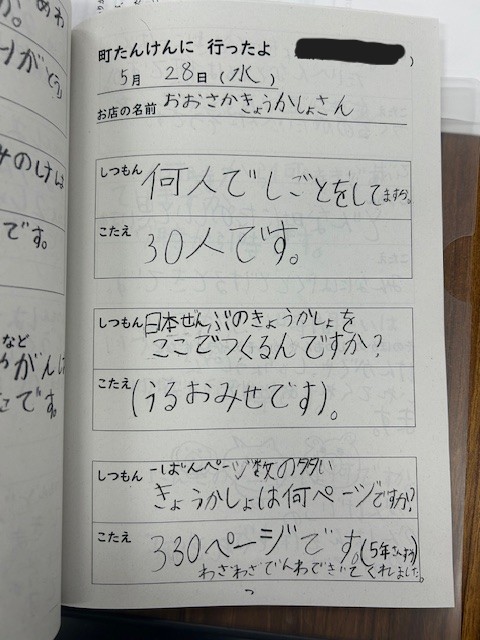 町たんけんに 行ったよ
5月 28日(水)
お店の名前 おおさかきょうかしょさん
しつもん 何人でしごとをしてますか。
こたえ 30人です。
しつもん 日本ぜんぶのきょうかしょを
ここでつくるんですか?
こたえ (うるおみせです)。
しつもん 一ばんページ数の多い
きょうかしょは何ページですか?
こたえ 330ページです。(5年さんすう)
わざわざでんわできいてくれました。
です。
など